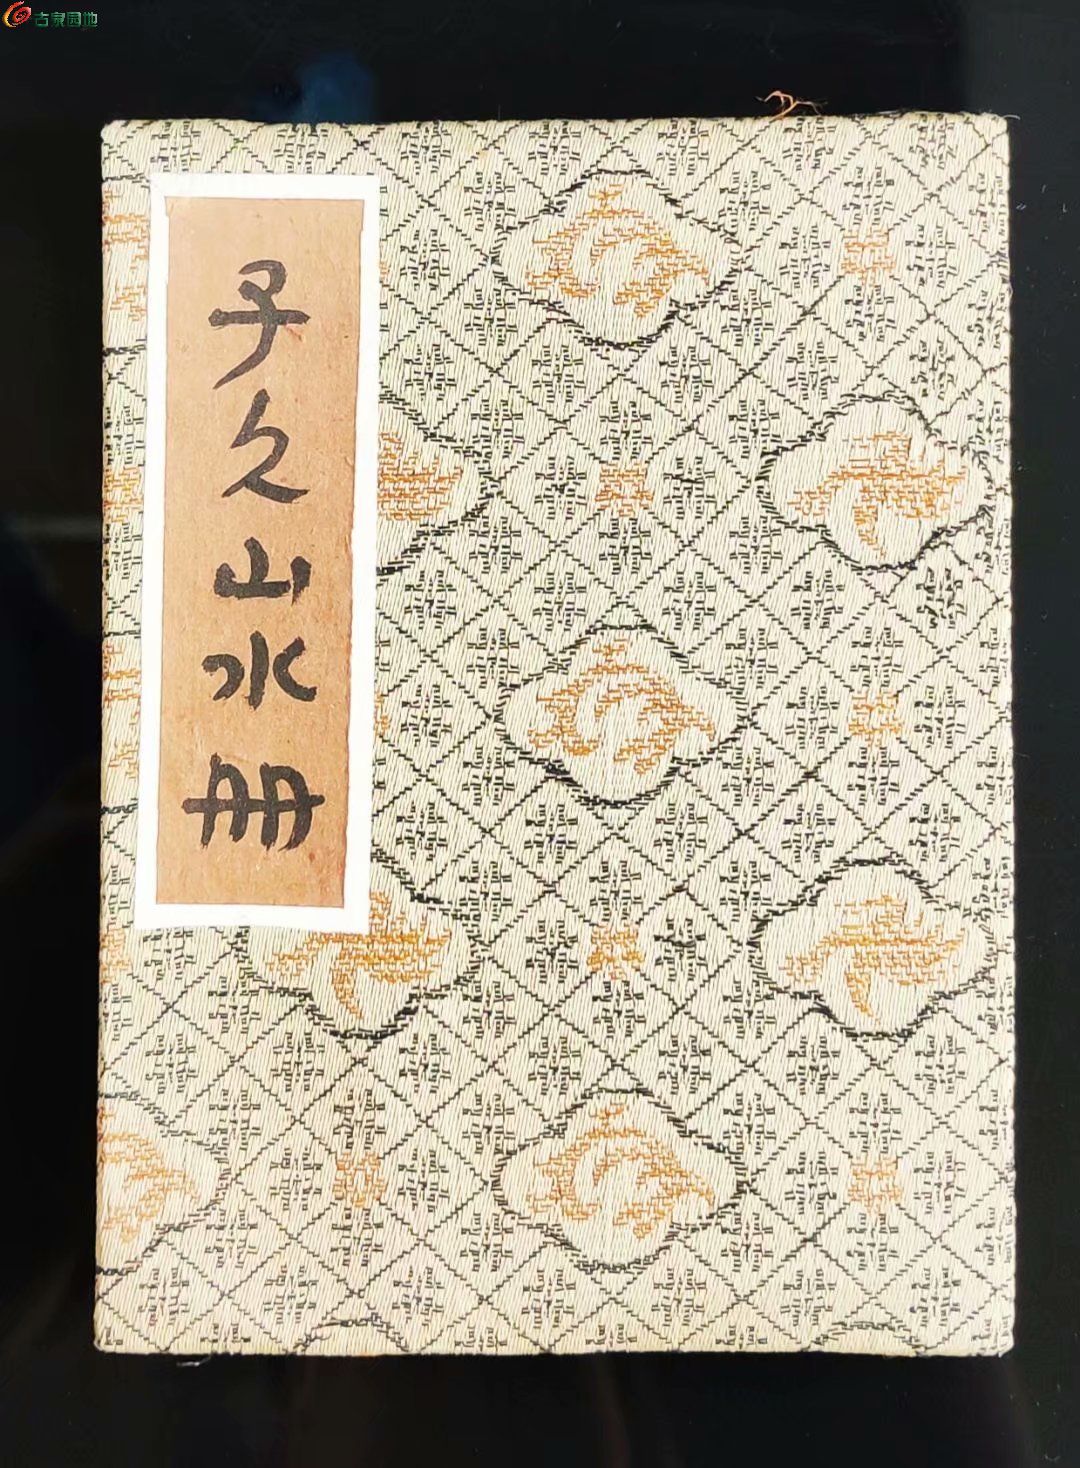 古泉园地
子久山水册